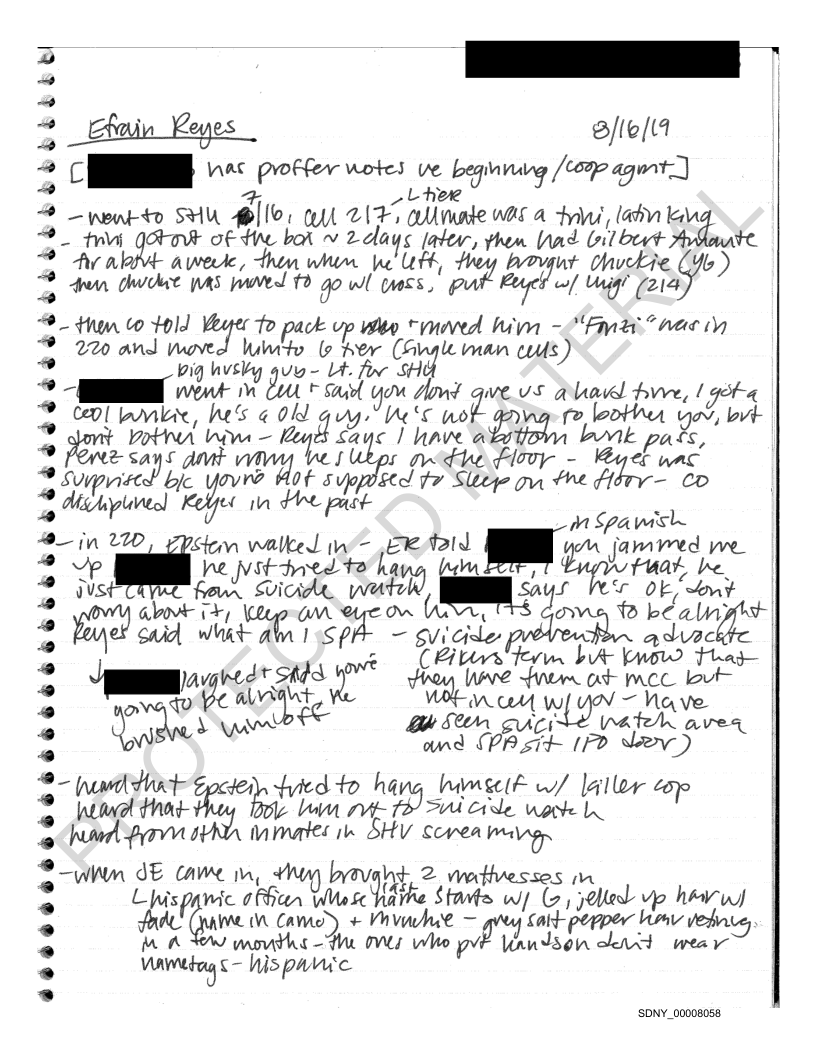 Efrain Reyes 8/16/19
[ has proffer notes re beginning / coop agmt ]
- went to SHU 7/16, cell 217, L tier cellmate was a trini, latin king
- trini got out of the box ~ 2 days later, then had Gilbert Amante
for about a week, then when he left, they brought chuckie (y6)
then chuckie was moved to go w/ cross, put Reyes w/ Luigi (214)
- then CO told Reyes to pack up + moved him - "Fonzi" was in
220 and moved him to G tier (single man cells)
big husky guy - Lt. for SHU
- went in cell + said you don't give us a hard time, I got a
cool bunkie, he's a old guy. he's not going to bother you, but
don't bother him - Reyes says I have a bottom bunk pass,
Perez says dont worry he sleeps on the floor - Reyes was
surprised b/c you're not supposed to sleep on the floor - CO
disciplined Reyes in the past
in Spanish
- in 220, Epstein walked in - ER told you jammed me
up he just tried to hang himself, I know that, he
just came from suicide watch, says he's ok, don't
worry about it, keep an eye on him, it's going to be alright
Reyes said what am I SPA - suicide prevention advocate
(Rikers term but know that
they have them at mcc but
not in cell w/ you - have
seen suicide watch area
and SPA sit IFO door)
laughed + said you're
going to be alright, he
brushed him off
- heard that Epstein tried to hang himself w/ killer cop
heard that they took him out to suicide watch
heard from other inmates in SHU screaming
- when JE came in, they brought 2 mattresses in
L hispanic officer whose last name starts w/ G, jelled up hair w/
fade (name in camo) + munchie - grey salt pepper hair retiring
in a few months - the ones who put hands on don't wear
nametags - hispanic
PROTECTED MATERIAL
SDNY_00008058